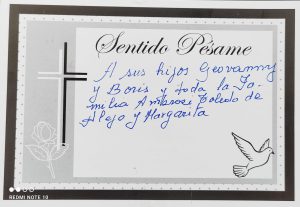 Sentido Pésame
A sus hijos Geovanny
y Boris y toda la Fa-
milia Ambrosi Toledo de
Alejo y Margarita
REDMI NOTE 10